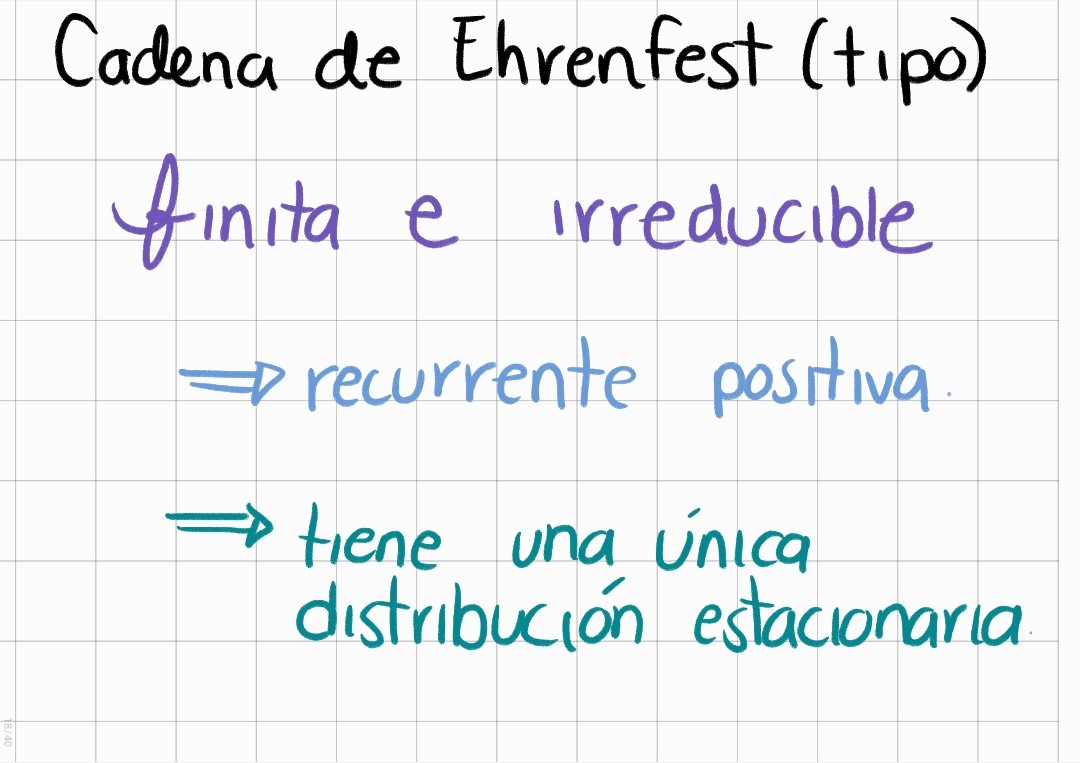 Cadena de Ehrenfest (tipo)
finita e irreducible
⟹ recurrente positiva.
⟹ tiene una única
distribución estacionaria.
18/40